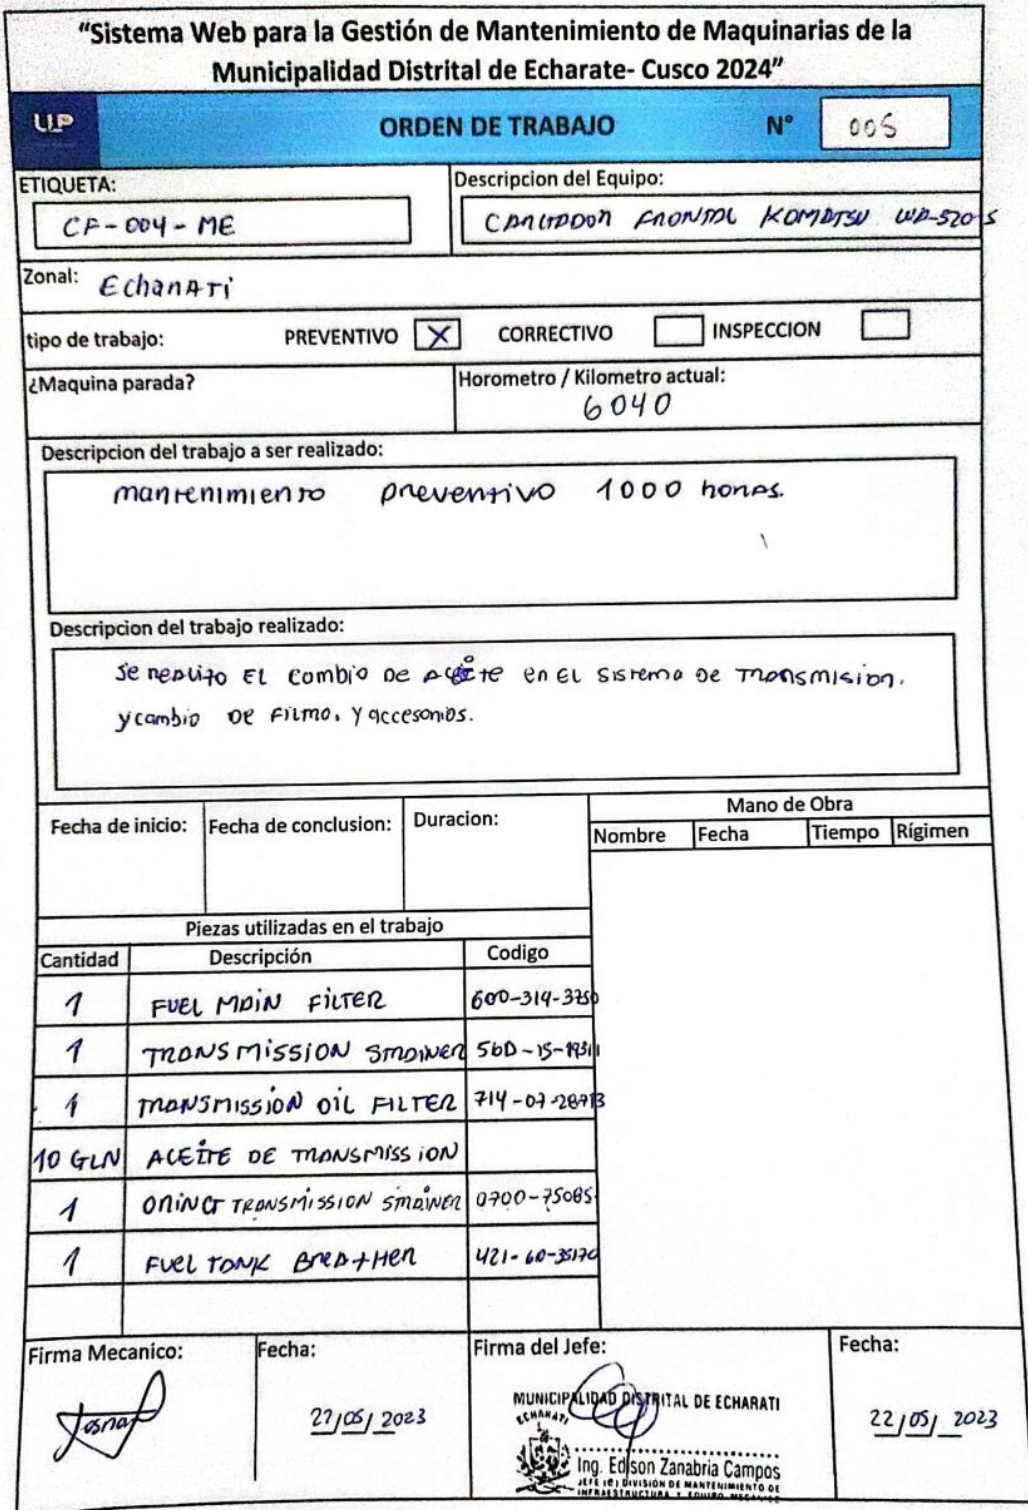 “Sistema Web para la Gestión de Mantenimiento de Maquinarias de la
Municipalidad Distrital de Echarate- Cusco 2024”
ULP
ORDEN DE TRABAJO N° 005
ETIQUETA: Descripcion del Equipo:
CF-004-ME CARGADOR FRONTAL KOMATSU WA-520-5
Zonal: EcharATi
tipo de trabajo: PREVENTIVO X CORRECTIVO INSPECCION
¿Maquina parada? Horometro / Kilometro actual:
6040
Descripcion del trabajo a ser realizado:
mantenimiento preventivo 1000 horas.
Descripcion del trabajo realizado:
Se realizo EL cambio DE Aceite en EL sistema DE Transmision.
y cambio DE Filtro, y accesorios.
Fecha de inicio: Fecha de conclusion: Duracion: Mano de Obra
Nombre Fecha Tiempo Rígimen
Piezas utilizadas en el trabajo
Cantidad Descripción Codigo
1 FUEL MAIN FILTER 600-319-3750
1 TRANSMISSION STRAINER 56D-15-19311
1 TRANSMISSION OIL FILTER 714-07-28713
10 GLN ACEITE DE TRANSMISSION
1 ORING TRANSMISSION STRAINER 0700-75085
1 FUEL TANK BREATHER 421-60-35170
Firma Mecanico: Fecha: Firma del Jefe: Fecha:
22/05/2023
MUNICIPALIDAD DISTRITAL DE ECHARATI
ECHARATI
22/05/2023
Ing. Edison Zanabria Campos
JEFE (E) DIVISIÓN DE MANTENIMIENTO DE
INFRAESTRUCTURA Y EQUIPO MECANICO